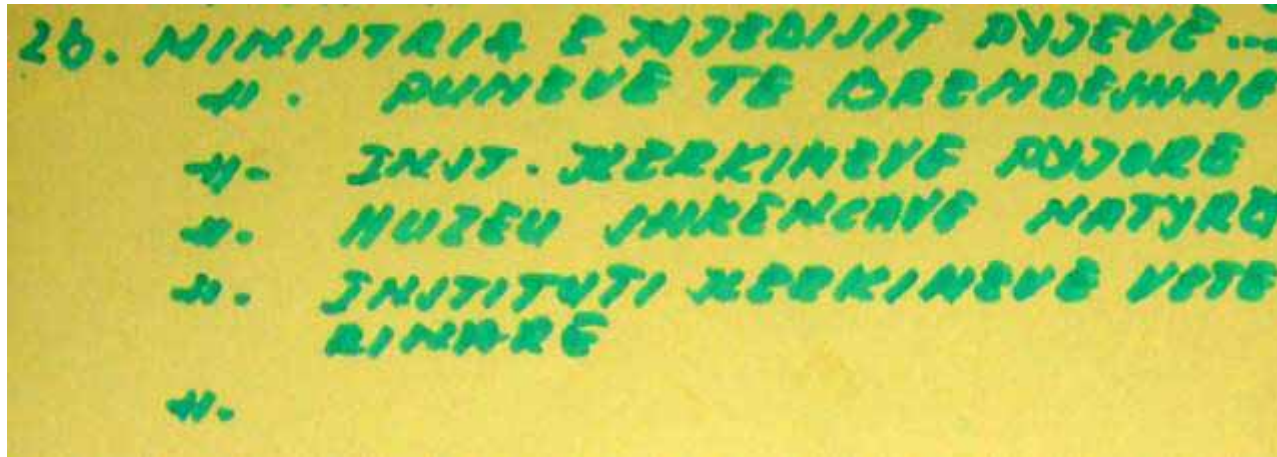 26. MINISTRIA E MJEDISIT PYJEVE...
-II. PUNEVE TE BRENDESHME
-II- INST. KERKIMEVE PYJORE
-II. MUZEU SHKENCAVE NATYRO
-II. INSTITUTI KERKIMEVE VETE
RINARE
-II.